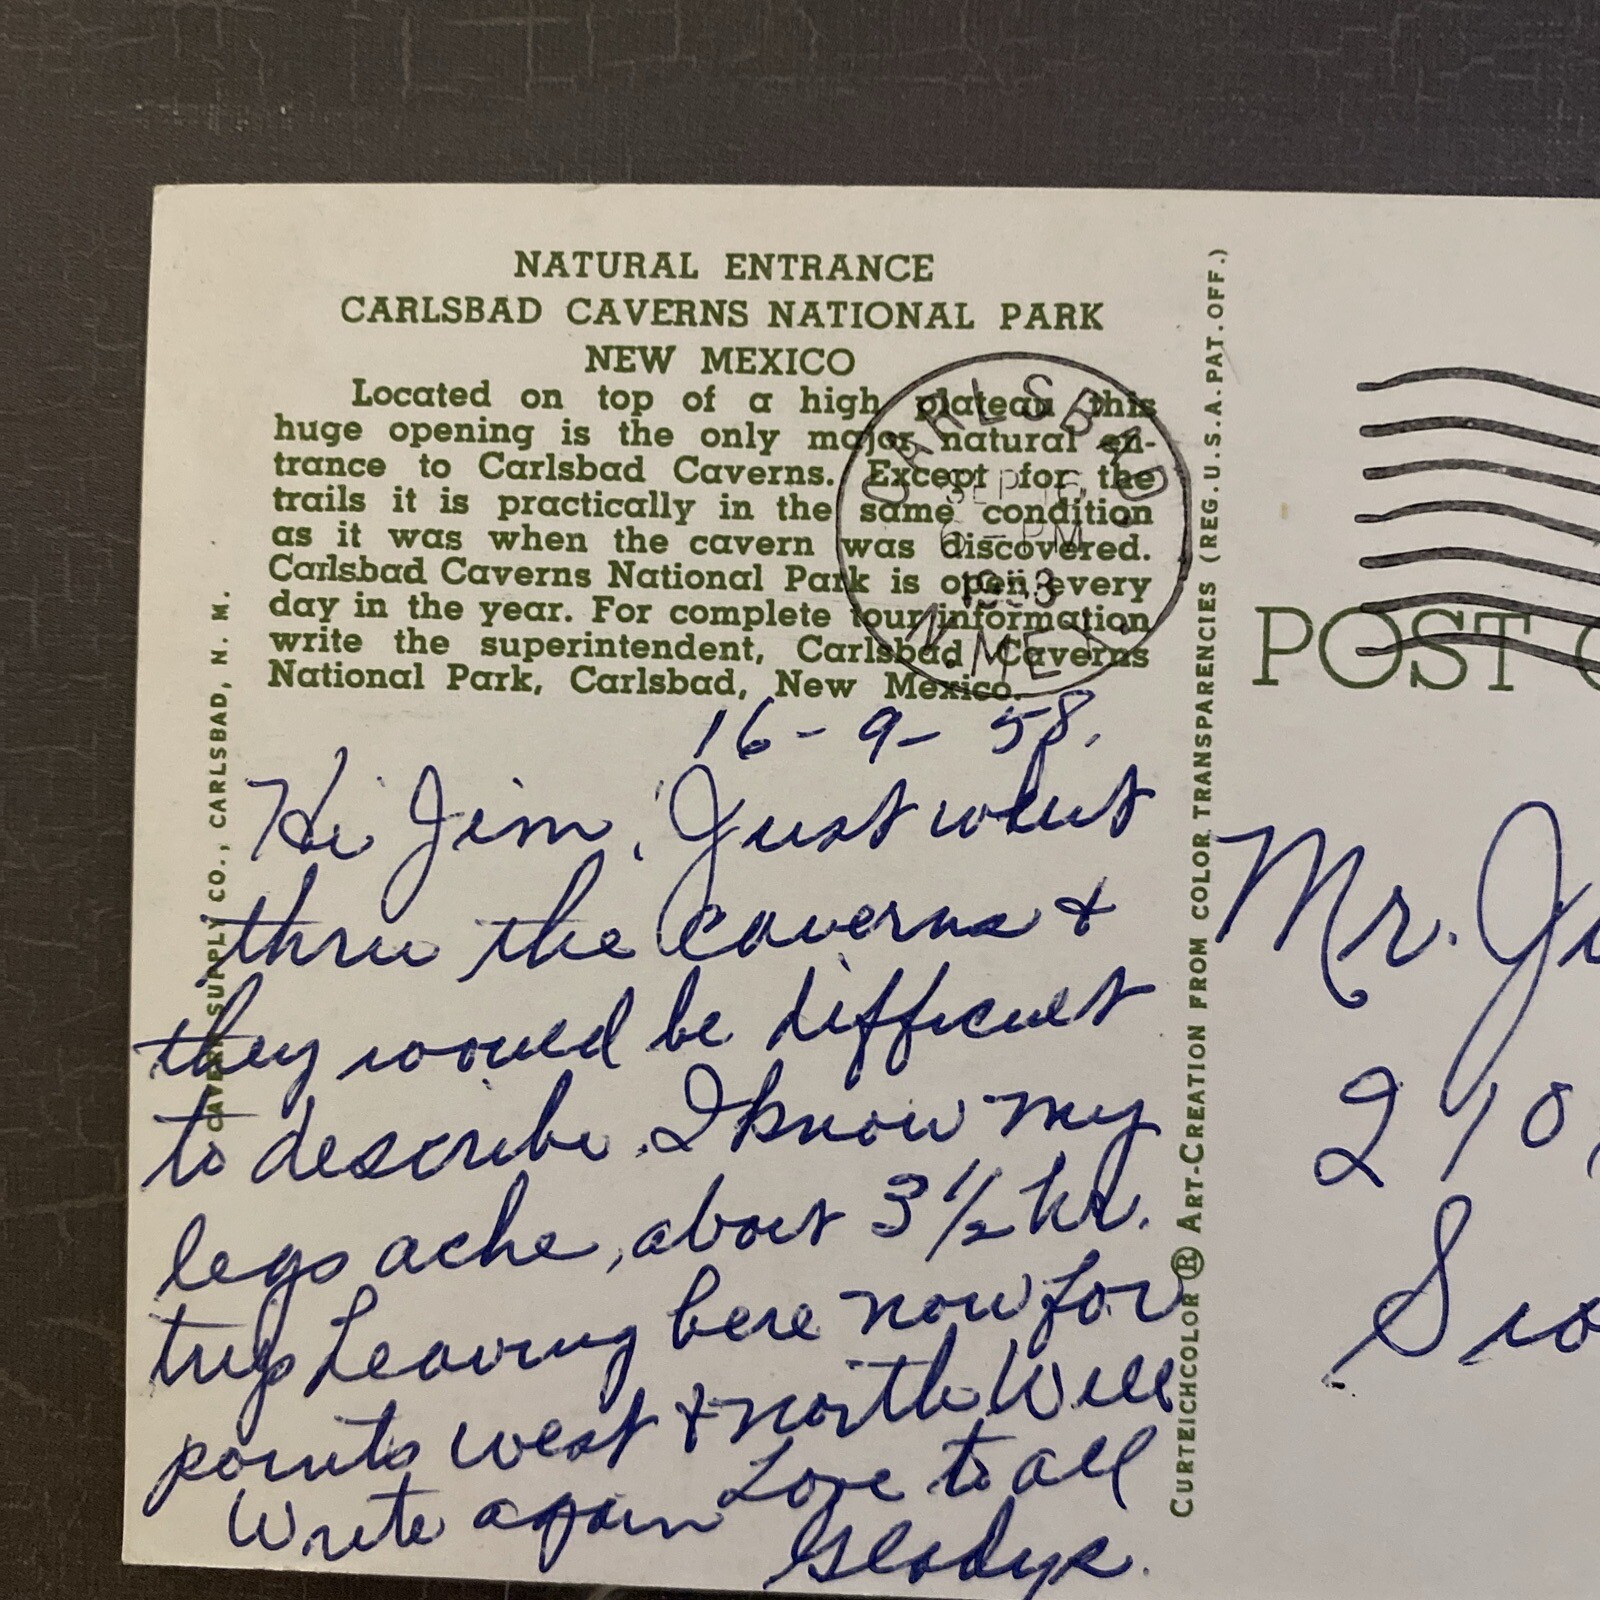 NATURAL ENTRANCE
CARLSBAD CAVERNS NATIONAL PARK
NEW MEXICO
Located on top of a high plateau this
huge opening is the only major natural en-
trance to Carlsbad Caverns. Except for the
trails it is practically in the same condition
as it was when the cavern was discovered.
Carlsbad Caverns National Park is open every
day in the year. For complete tour information
write the superintendent, Carlsbad Caverns
National Park, Carlsbad, New Mexico.
CARLSBAD
SEP 16
6 - PM
N. MEX.
16 - 9 - 58.
Hi Jim, Just went
thru the caverns +
they would be difficult
to describe. I know my
legs ache, about 3 1/2 hr.
trip Leaving here now for
points west + north Will
Write again Love to all
Gladys.
CAVERN SUPPLY CO., CARLSBAD, N. M.
CURTEICHCOLOR ® ART-CREATION FROM COLOR TRANSPARENCIES (REG. U.S.A. PAT. OFF.)
POST C
Mr. Ji
210
Sio